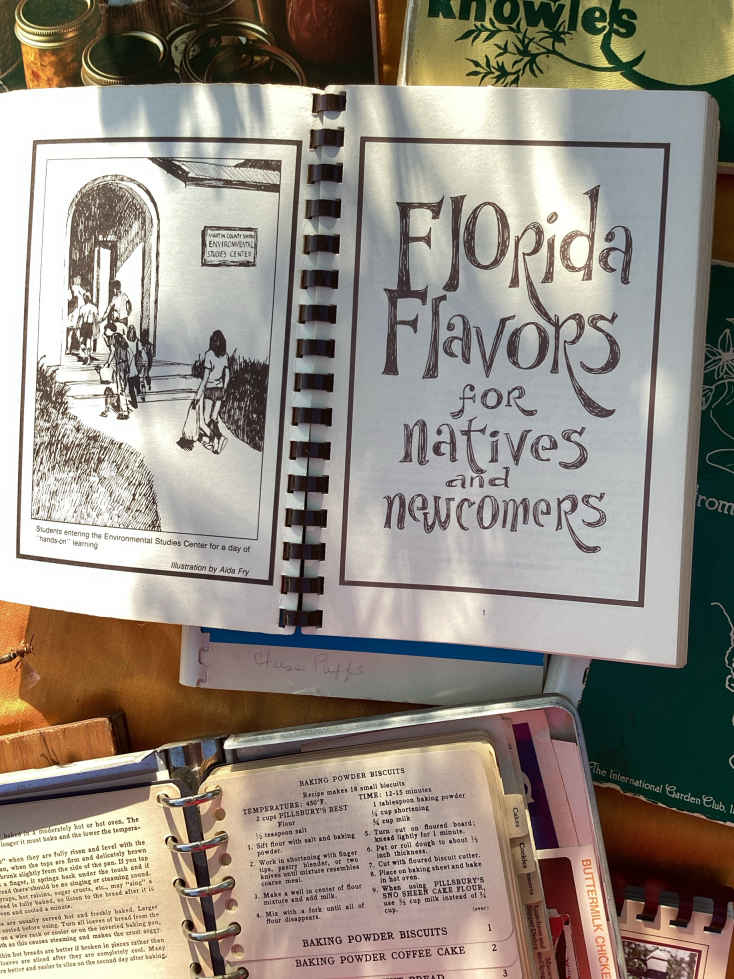 Knowles
MARTIN COUNTY
ENVIRONMENTAL
STUDIES CENTER
Students entering the Environmental Studies Center for a day of
"hands-on" learning
Illustration by Alda Fry
Florida
Flavors
for
natives
and
newcomers
1
Cheese Puffs
from
The International Garden Club, I
BAKING POWDER BISCUITS
Recipe makes 18 small biscuits
TEMPERATURE: 450°F.
TIME: 12-15 minutes
2 cups PILLSBURY'S BEST
Flour
½ teaspoon salt
1 tablespoon baking powder
¼ cup shortening
¾ cup milk
1. Sift flour with salt and baking
powder.
2. Work in shortening with finger
tips, pastry blender, or two
knives until mixture resembles
coarse meal.
3. Make a well in center of flour
mixture and add milk.
4. Mix with a fork until all of
flour disappears.
5. Turn out on floured board;
knead lightly for 1 minute.
6. Pat or roll dough to about ½
inch thickness.
7. Cut with floured biscuit cutter.
8. Place on baking sheet and bake
in hot oven.
9. When using PILLSBURY'S
SNO SHEEN CAKE FLOUR,
use ½ cup milk instead of ¾
cup.
(over)
BAKING POWDER BISCUITS 1
BAKING POWDER COFFEE CAKE 2
BREAD 3
Cakes
Cookies
BUTTERMILK CHICKE
baked in a moderately hot or hot oven. The
longer it must bake and the lower the tempera-
when they are fully risen and level with the
when the tops are firm and delicately brown
shrunk slightly from the side of the pan. If you tap
a finger, it springs back under the touch and it
there should be no singing or steaming sound.
is fully baked, so listen to the bread after it is
oven and cooled a minute.
are usually served hot and freshly baked. Larger
before using. Turn all loaves of bread from the
on a wire rack or corner or on the inverted baking pan,
as this causes steaming and makes the crust soggy.
thin hot breads are better if broken in pieces rather than
loaves are sliced after they are completely cold. Many
and easier to slice on the second day after baking.